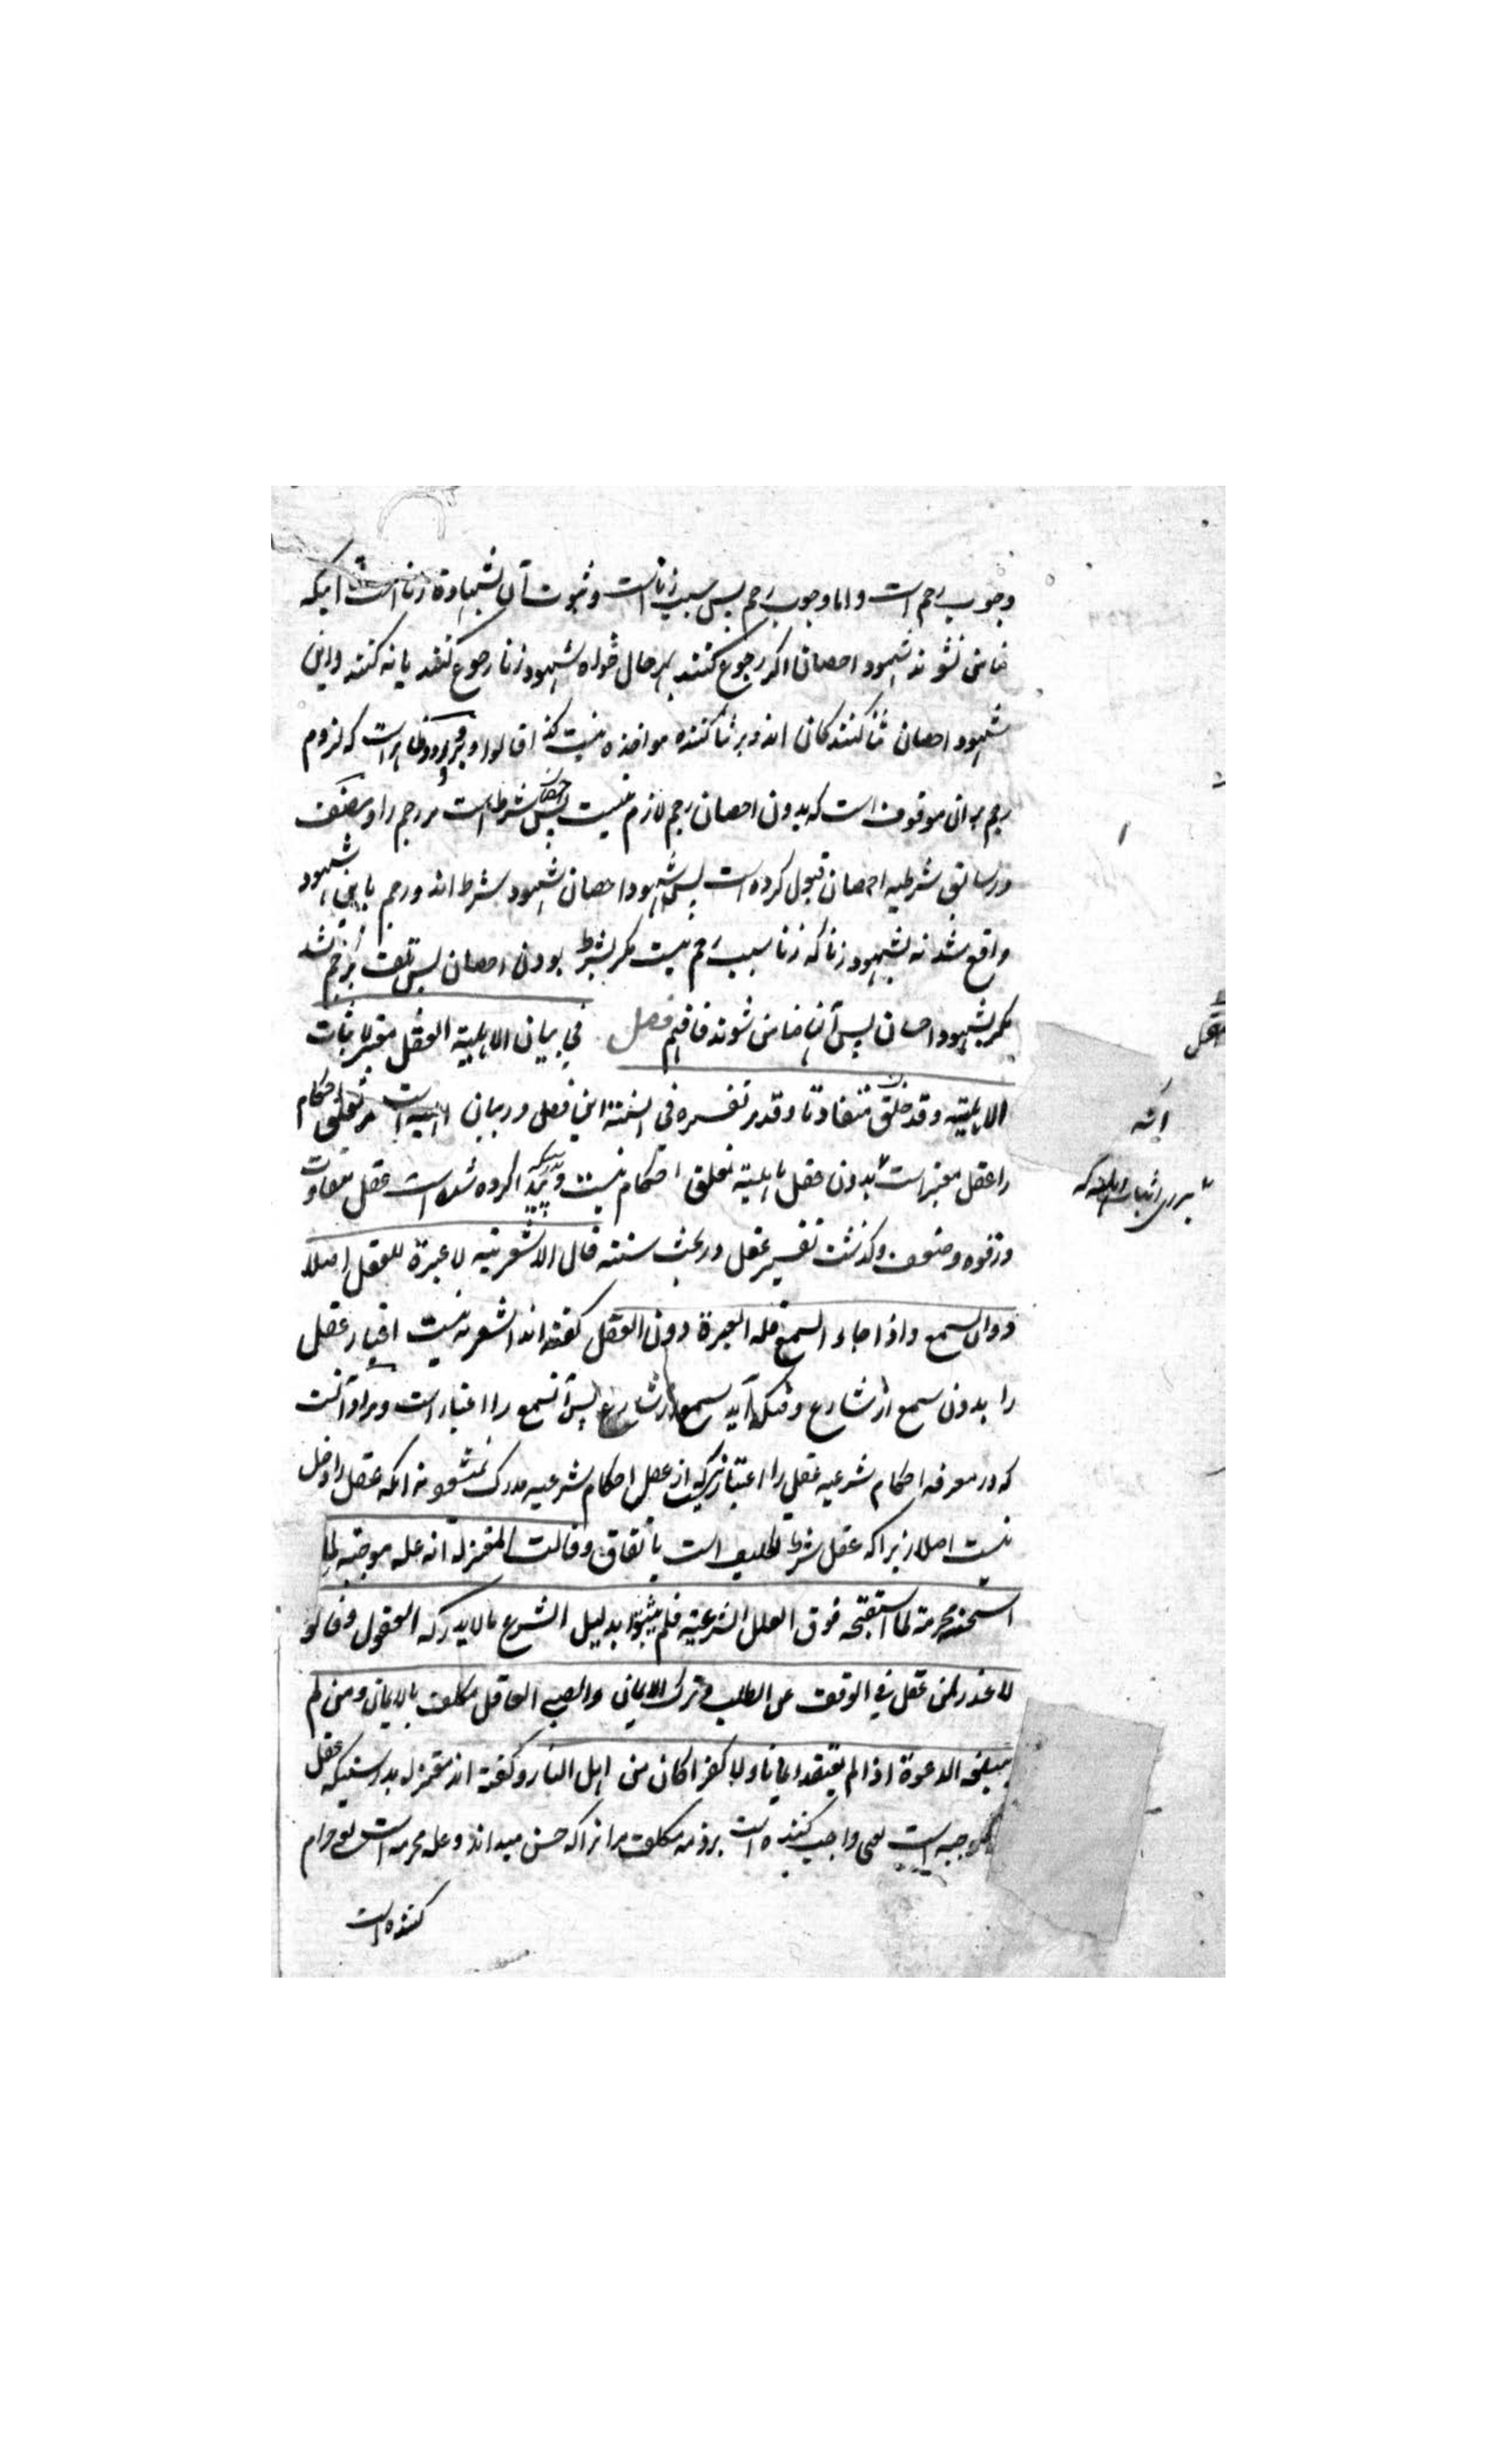 وجوب رجم است واما وجوب رجم پس سبب زنا است وثبوت آن بشهادة زنا است اینکه
ضامن نشوند شهود احصان اکر رجوع کنند بهرحال خواه شهود زنا رجوع کنند یا نه کنند واین
شهود احصان ثنا کنندکان اند وبر ثنا کننده مواخذه نیست کذا قالوا وبرو ظاهر است که لزوم
رجم بران موقوف است که بدون احصان رجم لازم نیست پس احصان شرط است مر رجم را ومصنف
در سابق شرطیه احصان قبول کرده است پس شهود احصان شهود شرط اند ورجم باین شهود
واقع شد نه بشهود زنا که زنا سبب رجم نیست مکر بشرط بودن احصان پس تلف برجم شد
مکر بشهود احصان پس آنها ضامن شوند فافهم فصل فی بیان الاهلیة العقل معتبر لاثبات
الاهلیة وقد خلق متفاوتا وقد مر تفسیره فی السنة این فصل در بیان اهلیة است مر تعلق احکام
را عقل معتبر است بدون عقل اهلیة تعلق احکام نیست وبدرستیکه پیدا کرده شده است عقل متفاوت
در قوه وضعف وکذشت تفسیر عقل در بحث سنته قال الاشعریة لا عبرة للعقل اصلا
دون السمع واذا جاء السمع فله العبرة دون العقل کفته اند اشعریه نیست اعتبار عقل
را بدون سمع از شارع وقتیکه آید سمع از شارع پس آن سمع را اعتبار است ومراد آنست
که در معرفه احکام شرعیه عقل را اعتبار نیست که از عقل احکام شرعیه مدرک نمیشود نه انکه عقل را دخل
نیست اصلا زیرا که عقل شرط تکلیف است باتفاق وقالت المعتزلة انه علة موجبة لما
استحسنه محرمة لما استقبحه فوق العلل الشرعیة فلم یثبتوا بدلیل الشرع ما لا یدرکه العقول وقالوا
لا عذر لمن عقل فی الوقف عن الطلب وترک الایمان والصبی العاقل مکلف بالایمان ومن لم
یبلغه الدعوة اذا لم یعتقد ایمانا ولا کفرا کان من اهل النار وکفته اند معتزله بدرستیکه عقل
علة موجبه است یعنی واجب کننده است بر ذمه مکلف مر انرا که حسن میداند وعلة محرمه است یعنی حرام
کننده است
برای اثبات اهلیة که